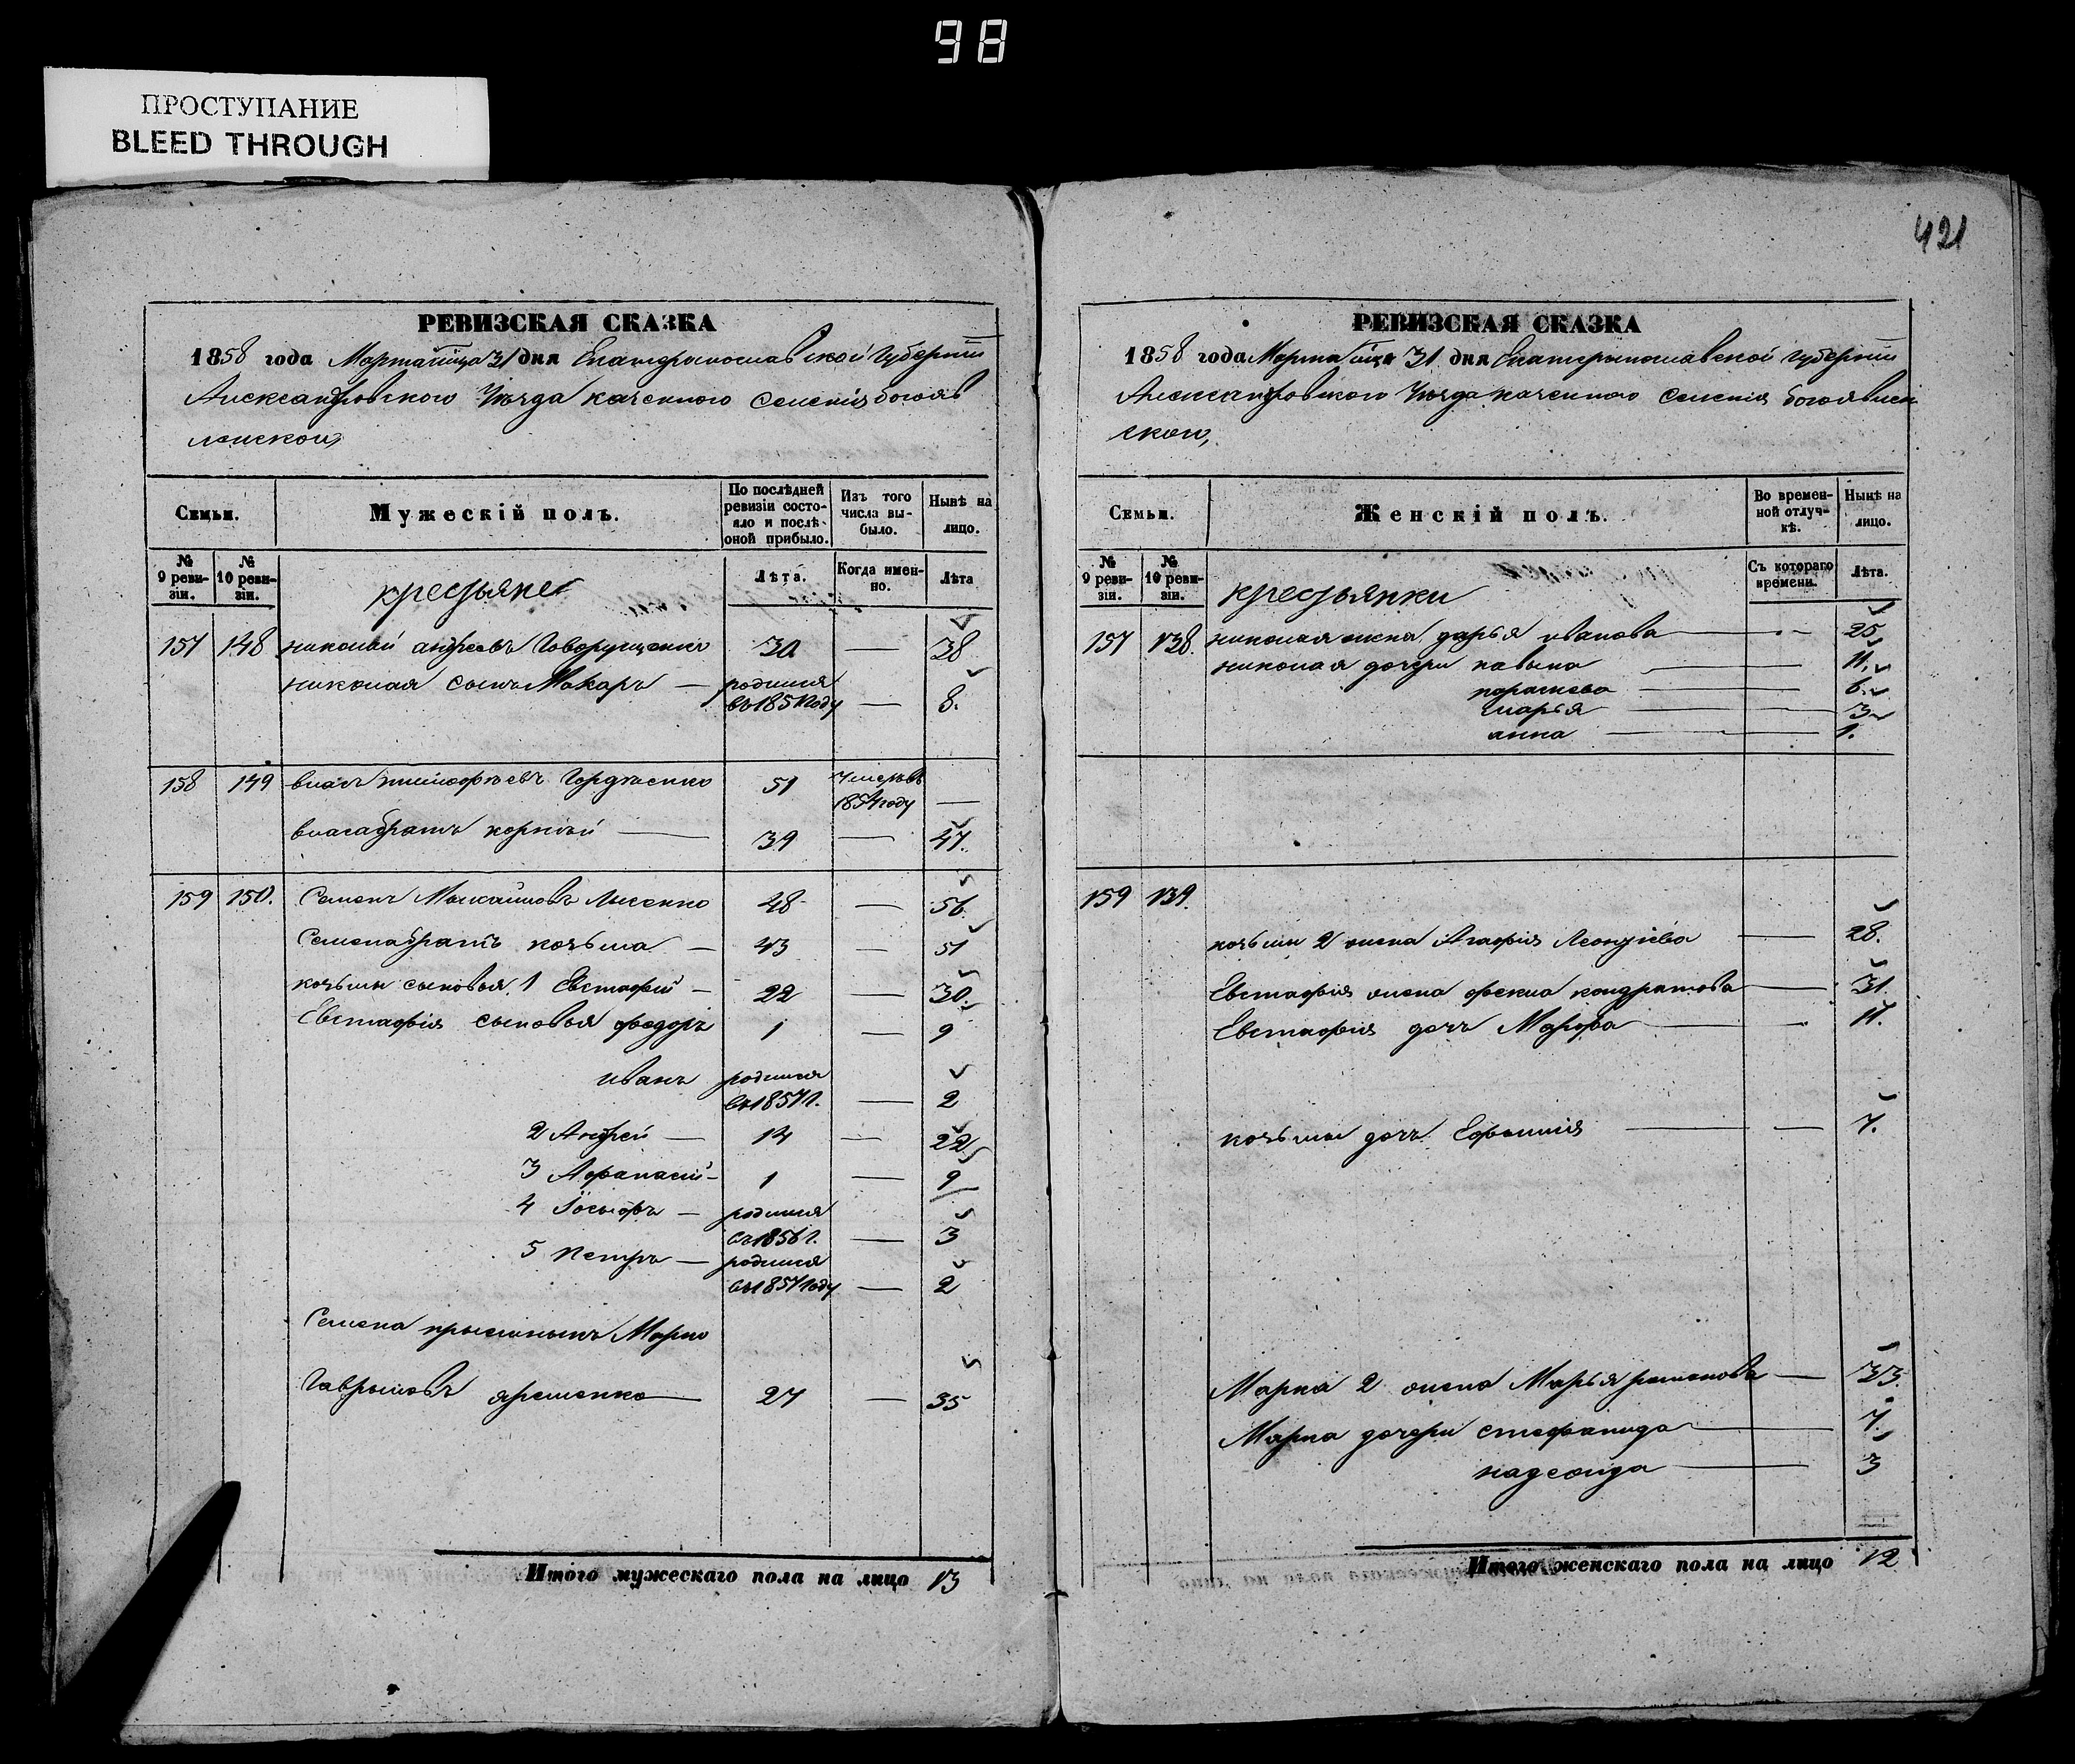 98
ПРОСТУПАНИЕ
BLEED THROUGH
421
РЕВИЗСКАЯ СКАЗКА
1858 года Марта м̃ца 31 дня Екатеринославской Губернии
Александровского Уезда казенного селения богояв
ленской,
Семьи.
Мужескій полъ.
По послѣдней ревизіи состояло и послѣ оной прибыло.
Изъ того числа выбыло.
Нынѣ на лицо.
№ 9 ревизіи.
№ 10 ревизіи.
крестьяне
Лѣта.
Когда именно.
Лѣта
157 148 николай андреевъ Говорущенко 30 — 38
николая сынъ Макаръ — родился
въ 1851 году — 8.
158 149 власъ тимофеевъ Гордиенко 51 Умеръ въ
1854 году —
власа братъ корней — 39 — 47.
159 150. Семенъ Михайловъ Лысенко 48 — 56.
Семена братъ козьма — 43 — 51
козьмы сыновья 1 Евстафий — 22 — 30.
Евстафия сыновья федоръ 1 — 9
иванъ родился
въ 1857 г. — 2
2 Андрей — 14 — 22
3 Афанасий — 1 — 9
4 Иосифъ — родился
въ 1856 г. — 3
5 петръ — родился
въ 1857 году — 2
Семена приемышъ Марко
Гавриловъ яременко — 27 — 35
Итого мужескаго пола на лицо 13
РЕВИЗСКАЯ СКАЗКА
1858 года Марта м̃ца 31 дня Екатеринославской губернии
Александровского Уезда казенного селения богоявлен
ской,
Семьи.
Женскій полъ.
Во временной отлучкѣ.
Нынѣ на лицо.
№ 9 ревизіи.
№ 10 ревизіи.
крестьянки
Съ котораго времени.
Лѣта.
157 138. николая жена дарья иванова — 25
николая дочери — 11.
парасков — 6.
марья — 3
анна — 1.
159 139.
козьмы 2 жена Агафия Леонтиева — 28.
Евстафия жена фекла кондратова — 31.
Евстафия дочь — 11.
козьмы дочь Ефимия — 7.
Марка 2 жена Марья романова — 33.
Марка дочери стефанида — 7.
надежда — 3
Итого женскаго пола на лицо 12